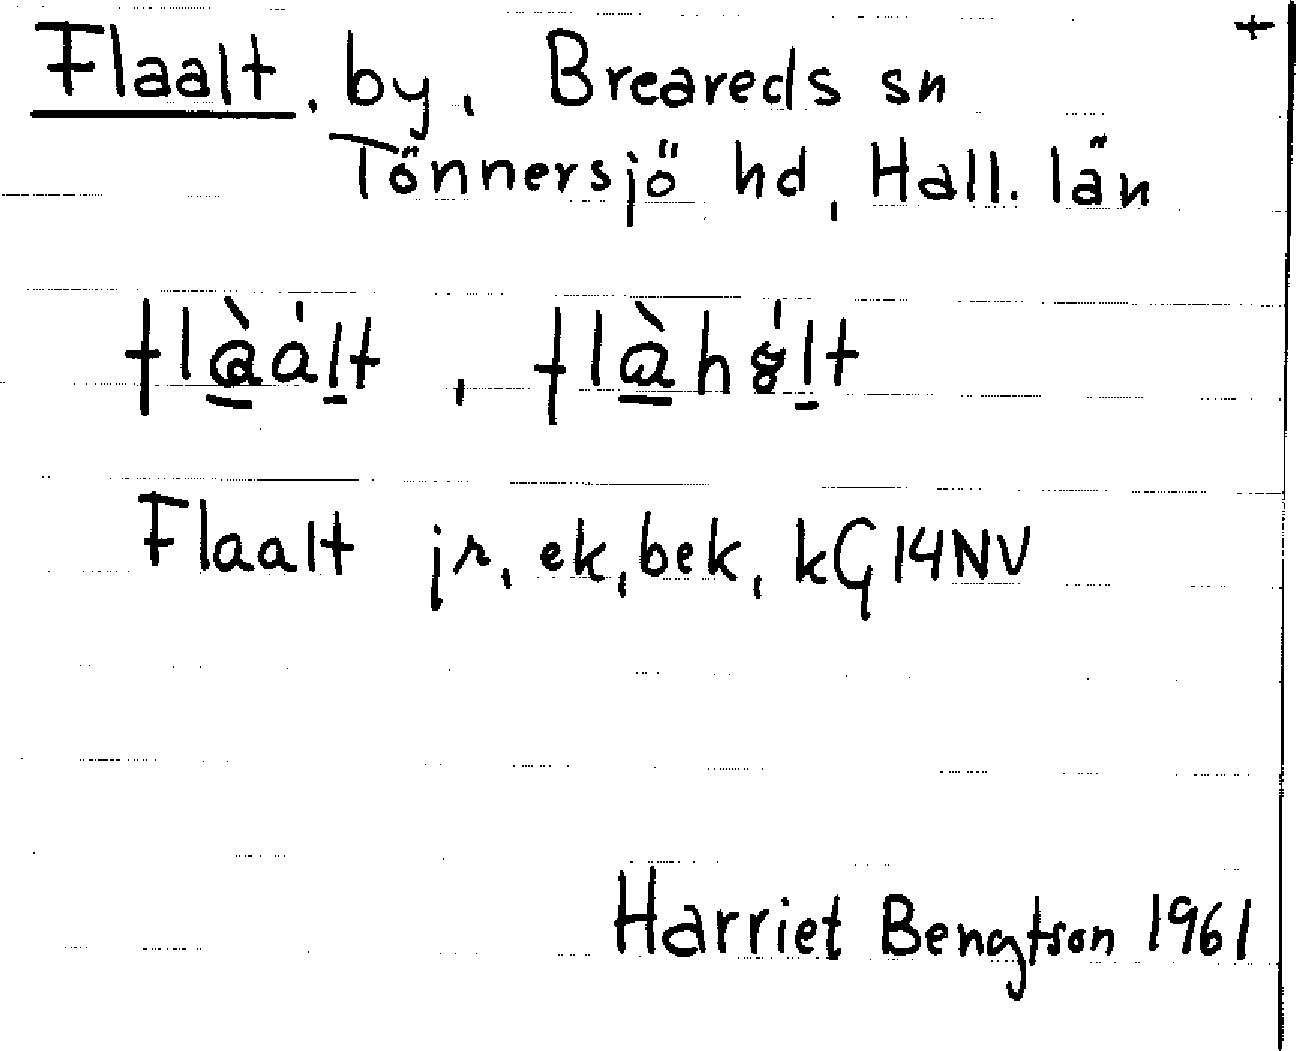 Flaalt, by, Breareds sn +
Tönnersjö hd, Hall. län
flàált, flàhált
Flaalt jr, ek, bek, kG14NV
Harriet Bengtson 1961